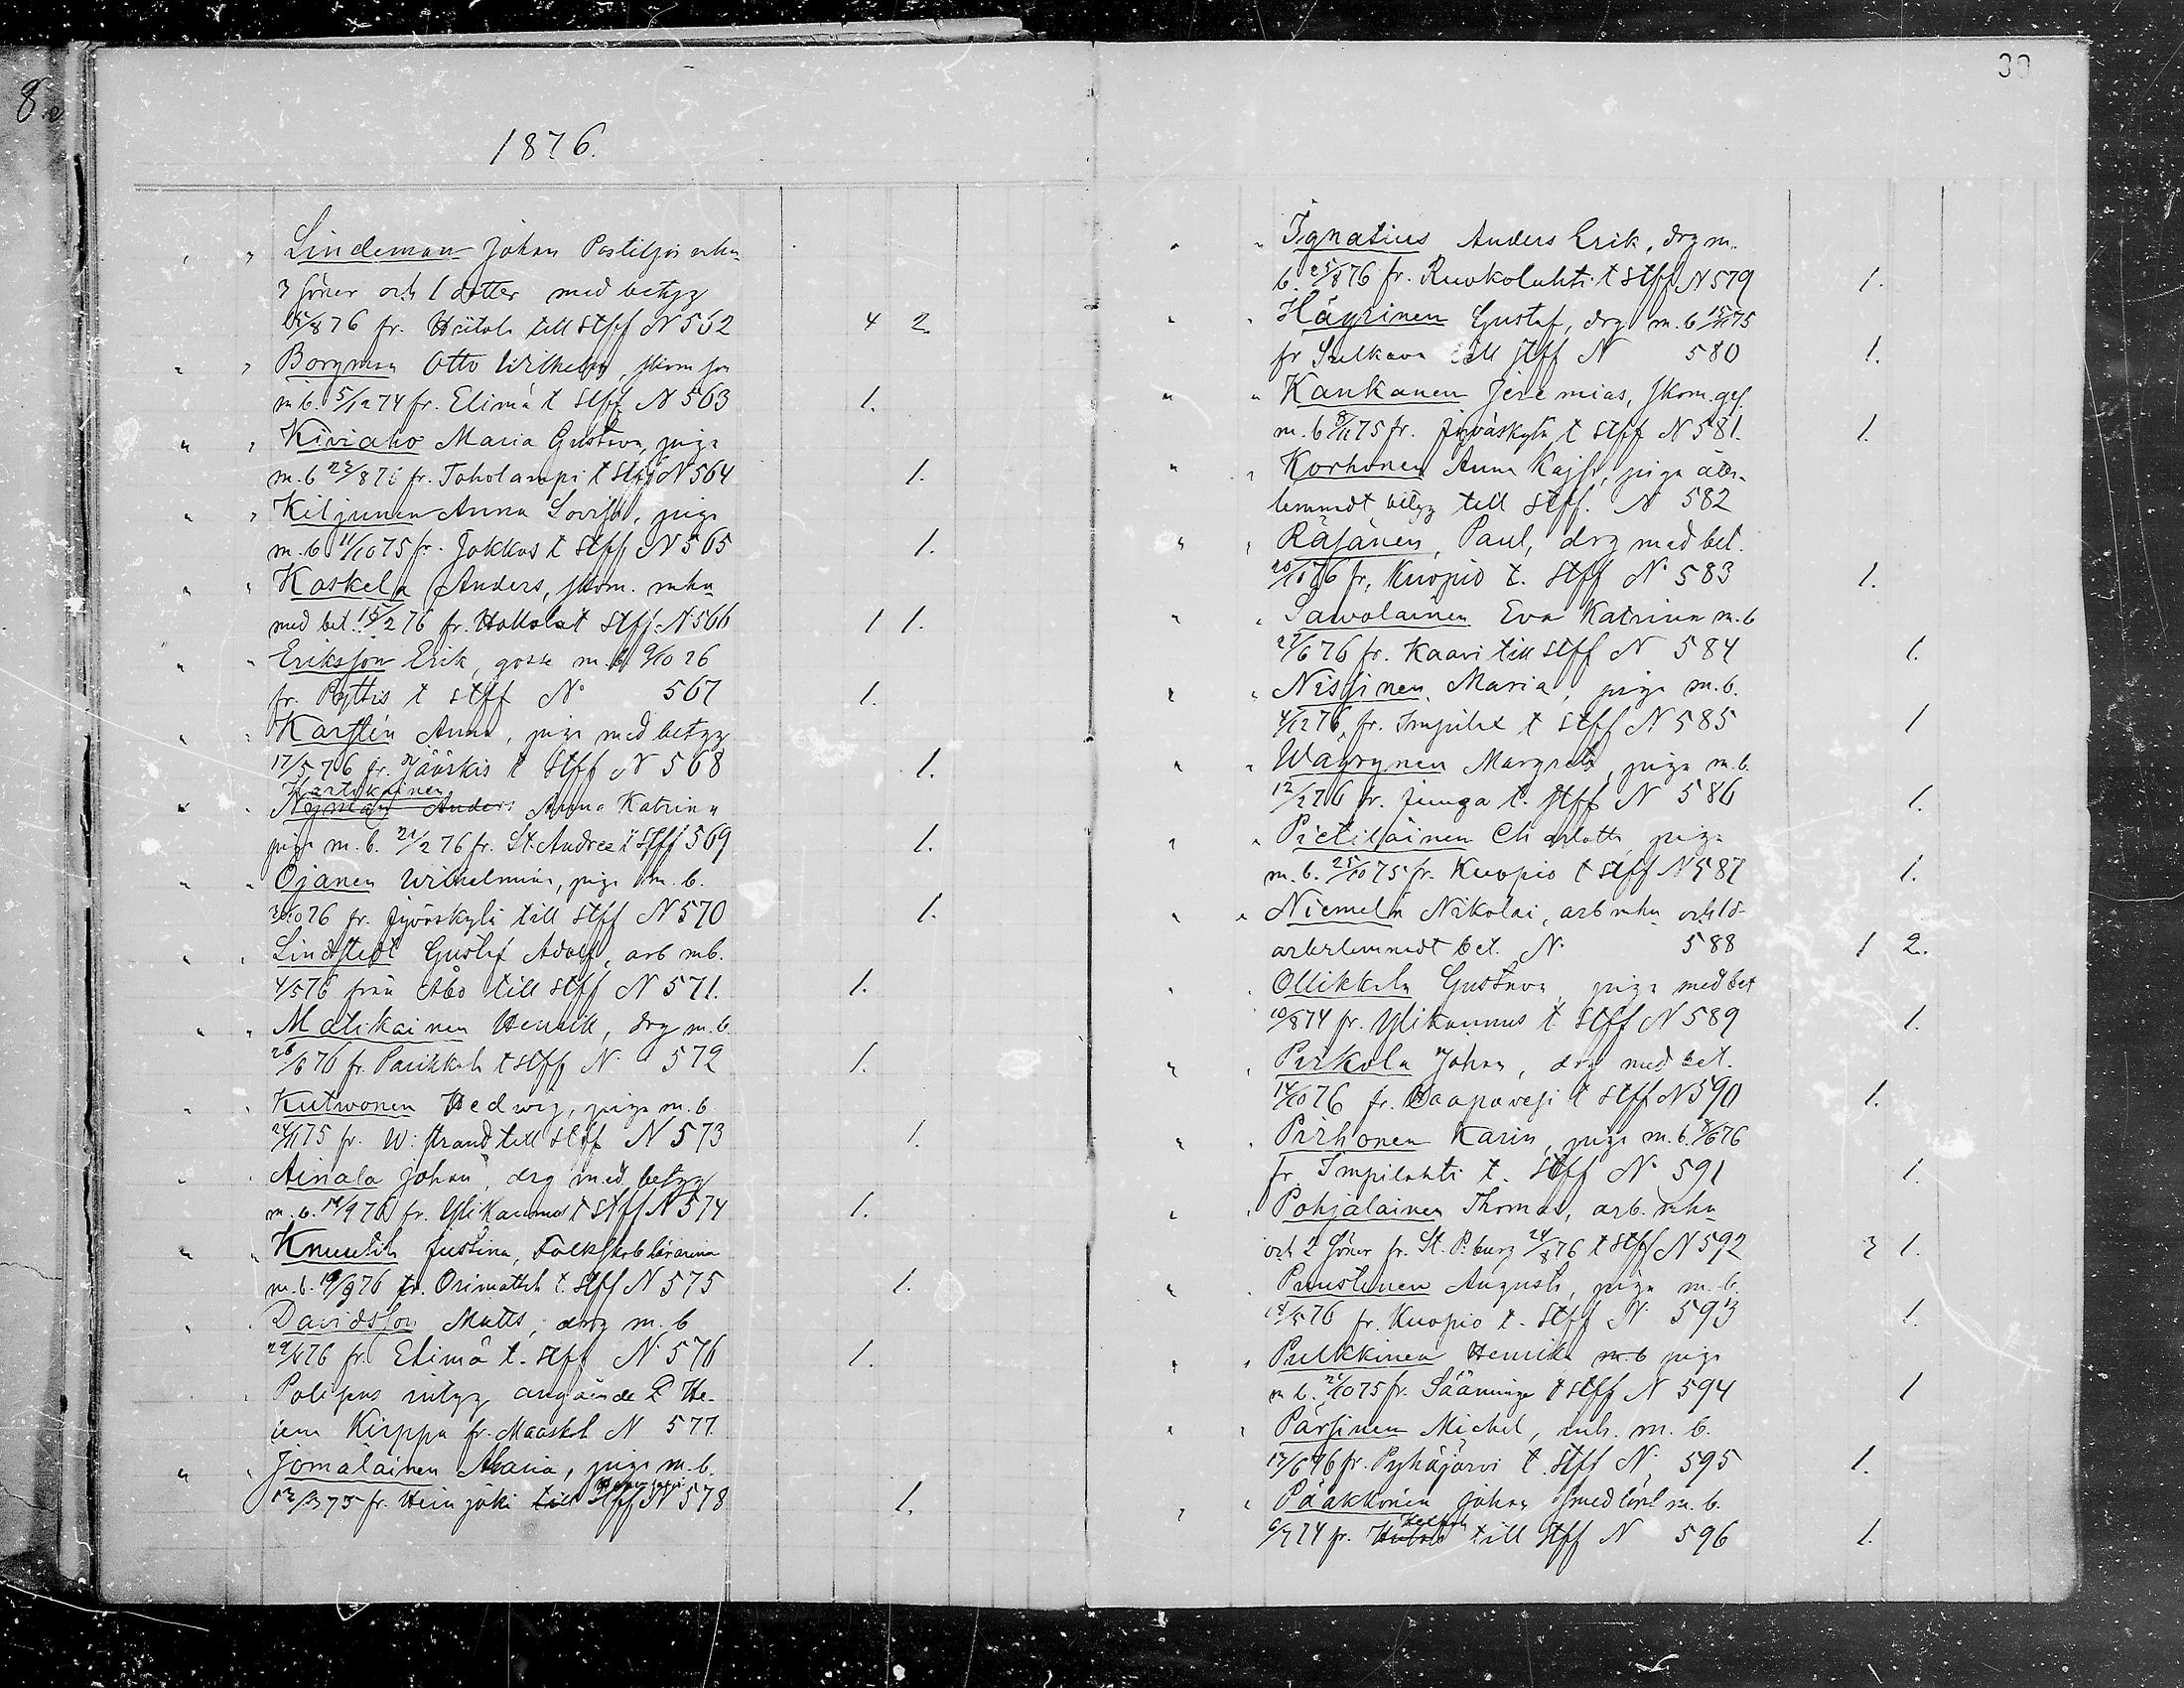 8.
1876.
" " Lindeman Johan Postiljon mhu
3 söner och 1 dotter med betyg
15/8 76 fr. Hiitola till Stff N 562 4 2
" " Borgman Otto Wilhelm, skom.
m b. 5/12 74 fr. Elimä t Stff N 563 1.
" " Kiviaho Maria Gustava, piga
m. b 23/8 76 fr. Toholampi t Stff N 564 1.
" " Kiljunen Anna Lovisa, piga
m. b 11/10 75 fr. Jokkas t Stff N 565 1.
" " Koskela Anders, skom. mhu
med bet. 15/2 76 fr. Hollola t Stff N 566 1 1.
" " Eriksson Erik, gosse m. b. 9/10 76
fr. Pyttis t Stff No 567 1.
" " Karstén Anna, piga med betyg
17/5 76 fr. Jääskis t Stff N 568 1.
Hartikainen
" " Nyman Anders Anna Katrina
piga m. b. 21/2 76 fr. St. Andree t Stff 569 1.
" " Ojanen Wilhelmina, piga m. b.
/10 76 fr. Jyväskylä till Stff N 570 1.
" " Lindstedt Gustaf Adolf, arb mb.
4/5 76 från Åbo till Stff N 571. 1.
" " Matikainen Henrik, drg m. b
26/6 76 fr. Parikkala t Stff N 572 1.
" " Kutwonen Hedwig, piga m. b
24/11 75 fr. W:strand till Stff N 573 1.
" " Ainala Johan, drg med betyg
m. b. 14/9 76 fr. Ylikannus t Stff N 574 1.
" " Knuutila Justina, Folkskolelärarinna
m. b. 19/9 76 fr. Orimattila t. Stff N 575 1.
" Davidsson Matts, drg m. b
29/4 76 fr. Elimä t. Stff N 576 1.
" Polisens intyg angående E He-
lena Kirppu fr. Maaskol N 577.
" " Jomalainen Maria, piga m. b.
12/3 75 fr. Heinjoki till Stff N 578 1.
30
" " Ignatius Anders Erik, drg m.
b. 25/8 76 fr. Ruokolahti t Stff N 579 1.
" " Häyrinen Gustaf, drg m. b 15/11 75
fr Sulkava till Stff N 580 1.
" " Kaukanen Jeremias, skom. ges.
m. b 8/11 75 fr. Jyväskylä t Stff N 581. 1.
" " Korhonen Anna Kajsa, piga åter-
lemnadt betyg till Stff. N 582
" " Räsänen, Paul, drg med bet.
20/10 76 fr. Kuopio t. Stff N 583 1.
" " Sawolainen Eva Katrina m. b
27/6 76 fr. Kaavi till Stff N 584 1.
" " Nissinen Maria, piga m. b.
4/12 76 fr. Impilax t Stff N 585 1
" " Wäyrynen Margreta, piga m. b.
12/2 76 fr. Juuga t. Stff N 586 1.
" " Pietiläinen Charlotta piga
m. b. 25/10 75 fr. Kuopio t Stff N 587 1.
" " Niemelä Nikolai, arb mhu och 1 d
aterlemnadt bet. N 588 1 2.
" " Ollikkala Gustava piga med bet
10/8 74 fr. Ylikannus t. Stff N 589 1.
" " Pirkola Johan, drg med bet.
14/10 76 fr. Haapavesi t Stff N 590 1.
" " Pirhonen Karin, piga m. b. /6 76
fr. Impilahti t. Stff N 591 1.
" " Pohjalainen Thomas, arb. mhu
och 2 söner fr. St. P:burg 24/8 76 t Stff N 592 3 1.
" " Puustinen Augusta, piga m. b.
18/5 76 fr. Kuopio t. Stff N 593 1.
" " Pulkkinen Henrika m. b piga
m b. 21/10 75 fr. Sääminge t Stff N 594 1
" " Pärsinen Michel, inh. m. b.
17/6 76 fr. Pyhäjärvi t Stff N 595 1.
" " Pääkkönen Johan smedlärl m. b.
6/7 74 fr. Hiitola till Stff N 596 1.